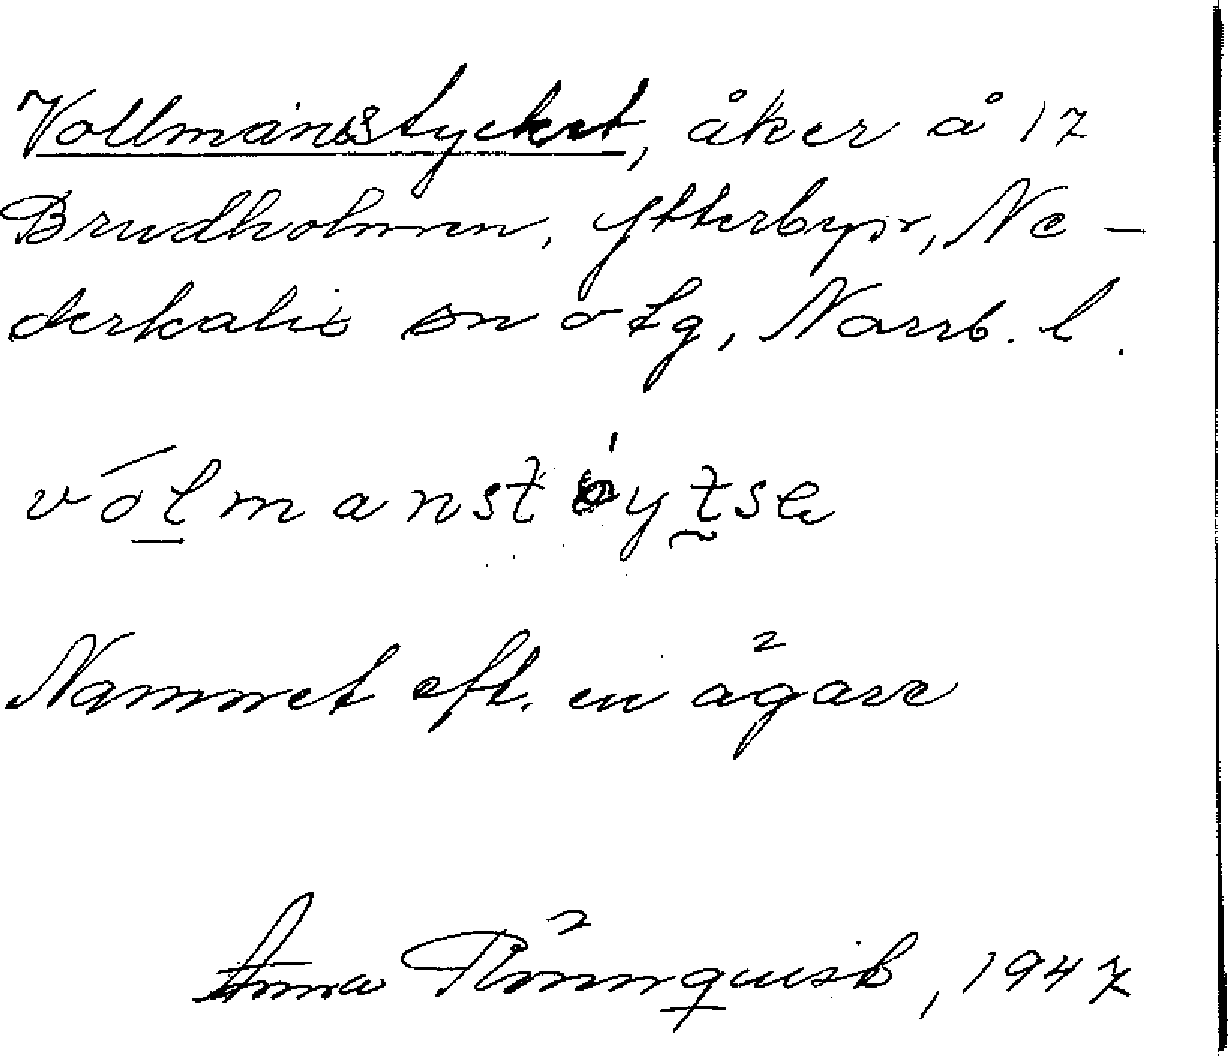 Vollmansstycket, åker å 17
Brudholmen, Ytterbyn, Ne-
derkalix sn o tg, Norrb. l.
Namnet eft. en ägare
Anna Rönnquist, 1947